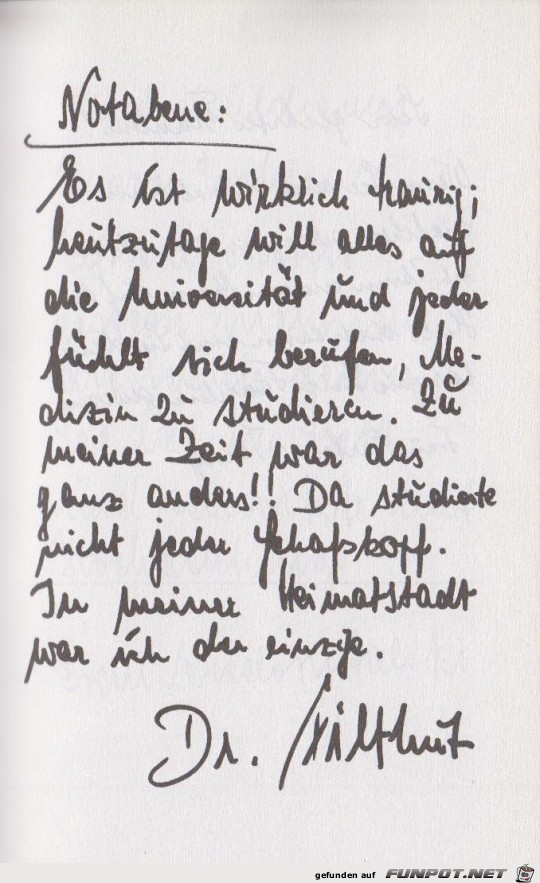 Notabene:
Es ist wirklich traurig;
heutzutage will alles auf
die Universität und jeder
fühlt sich berufen, Me-
dizin zu studieren. Zu
meiner Zeit war das
ganz anders!! Da studierte
nicht jeder Schafskopf.
In meiner Heimatstadt
war ich der einzige.
Dr.
gefunden auf FUNPOT.NET